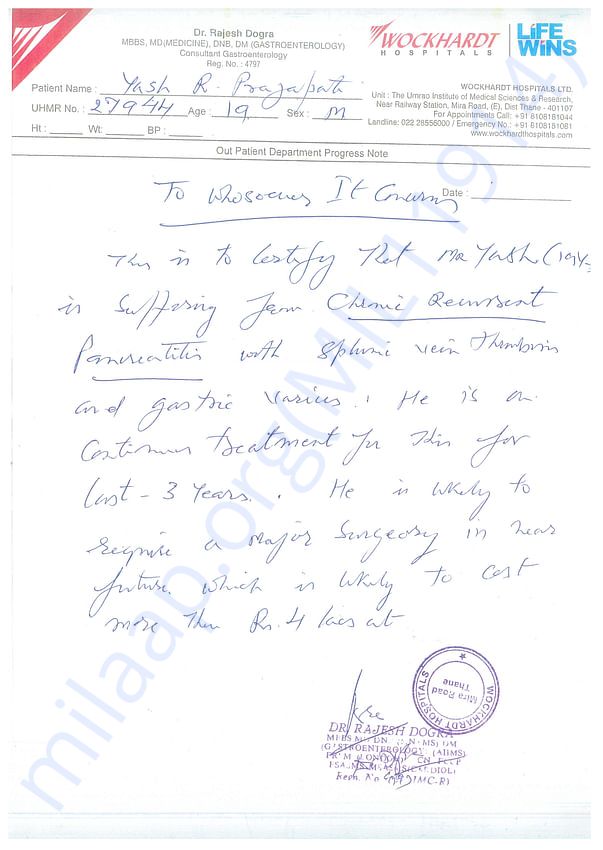 Dr. Rajesh Dogra
MBBS, MD(MEDICINE), DNB, DM (GASTROENTEROLOGY)
Consultant Gastroenterology
Reg. No. : 4797
WOCKHARDT
HOSPITALS
LiFE
WiNS
Patient Name : Yash R. Prajapati
UHMR No. : 27944 Age : 19 Sex : M
Ht : Wt: BP :
WOCKHARDT HOSPITALS LTD.
Unit : The Umrao Institute of Medical Sciences & Research,
Near Railway Station, Mira Road, (E), Dist Thane - 401107
For Appointments Call: +91 8108181044
Landline: 022 28556000 / Emergency No.: +91 8108151081
www.wockhardthospitals.com
Out Patient Department Progress Note
Date :
To Whosoever It Concerns
This is to Certify that Mr Yash
is suffering from Chronic Recurrent
Pancreatitis with Splenic vein Thrombosis
and gastric varices. He is on
Continuous treatment for this for
last - 3 Years. He is likely to
require a major Surgery in near
future which is likely to cost
more than Rs. 4 lacs at
WOCKHARDT HOSPITALS
Mira Road
Thane
DR. RAJESH DOGRA
(GASTROENTEROLOGY) (AIIMS)
milaap.org(MIL11914)